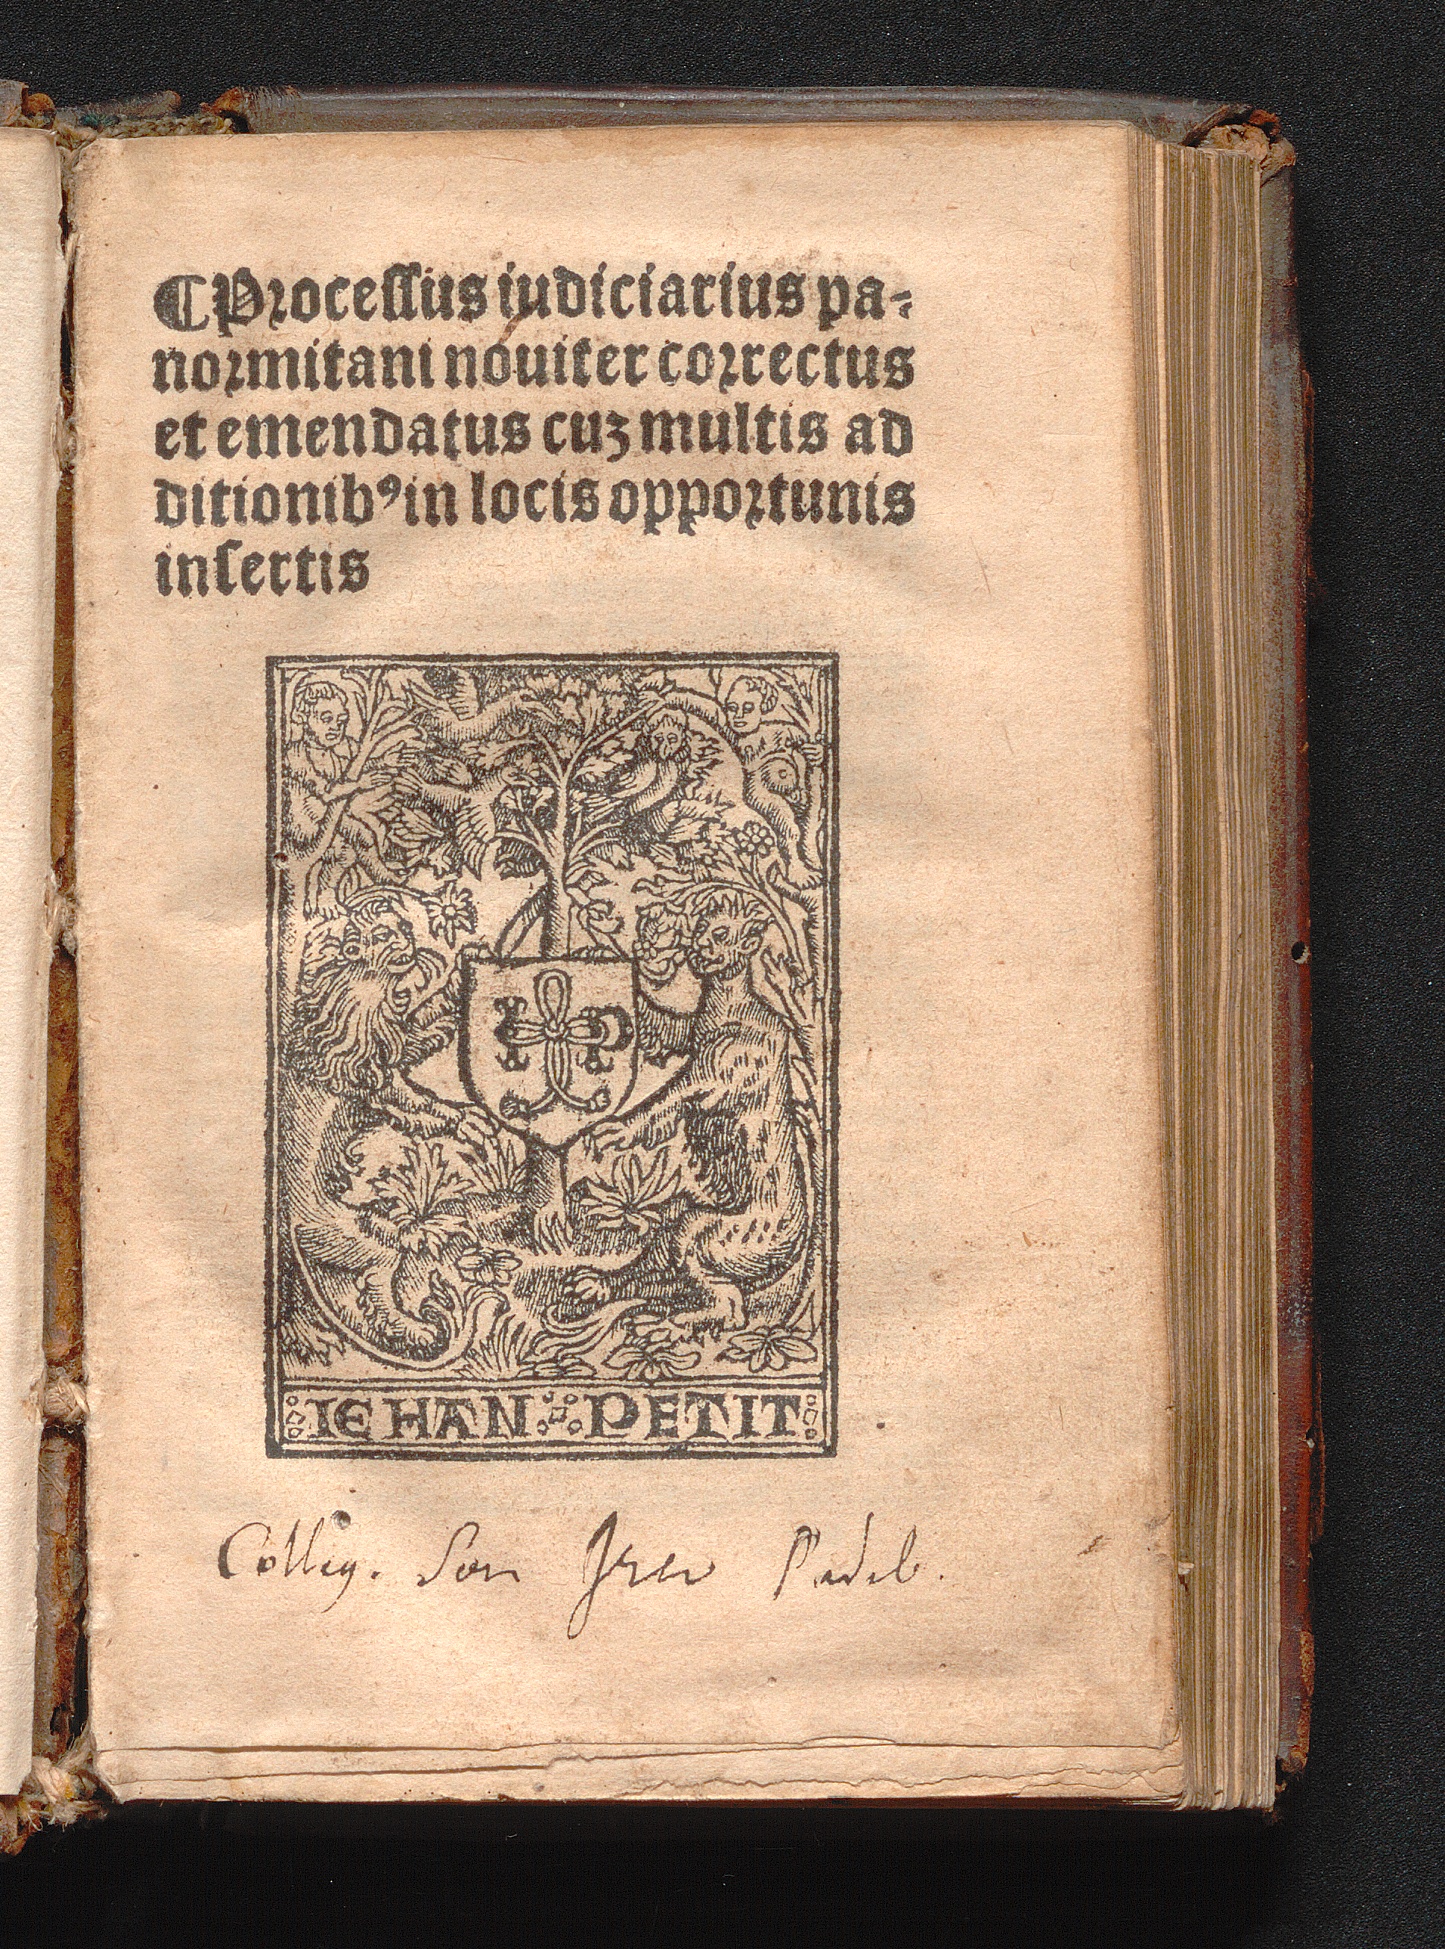 ¶Processus iudiciarius pa-
normitani nouiter correctus
et emendatus cuꝫ multis ad
ditionibꝰ in locis opportunis
insertis
IEHAN PETIT
Colleg. Soc Jesu Padeb.